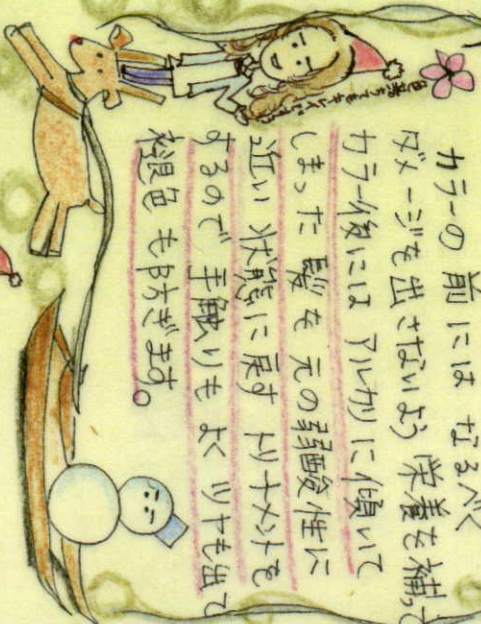 カラーの前には なるべく
ダメージを出さないよう 栄養を補って
カラー後には アルカリに傾いて
しまった 髪を元の弱酸性に
近い状態に戻す トリートメントを
するので 手触りもよく ツヤも出て
褪色も防ぎます。